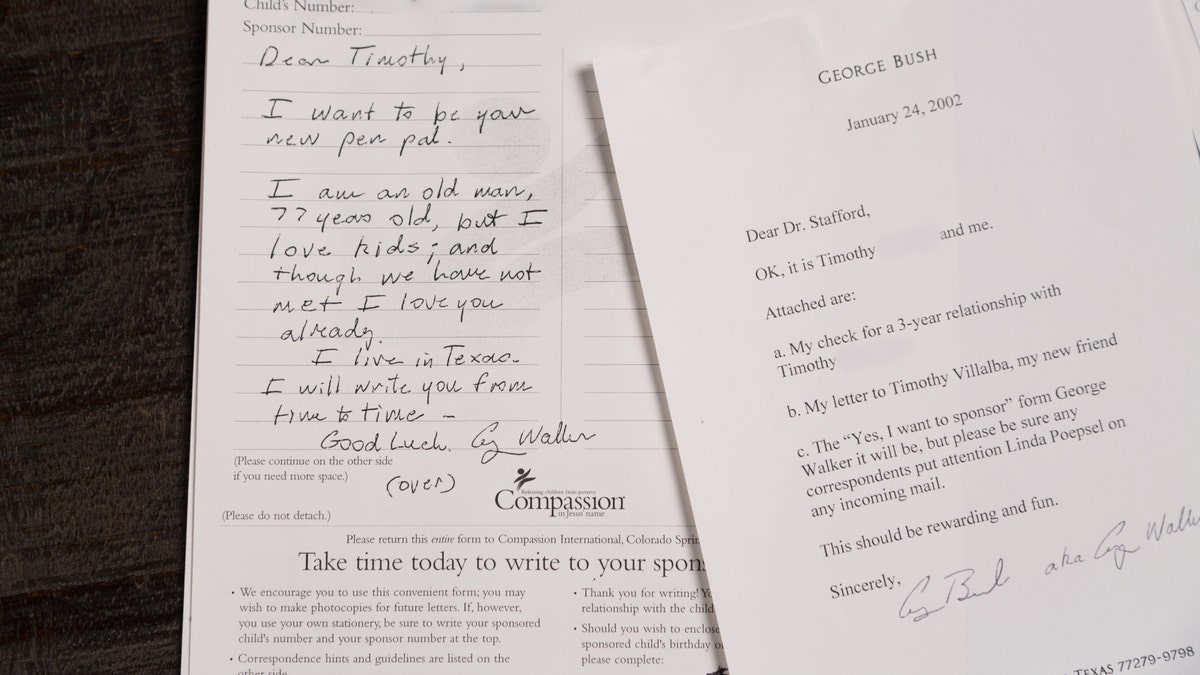 Child's Number:
Sponsor Number:
Dear Timothy,
I want to be your
new pen pal.
I am an old man,
77 years old, but I
love kids; and
though we have not
met I love you
already.
I live in Texas-
I will write you from
time to time -
Good Luck. G Walker
(Please continue on the other side
if you need more space.)
(over)
Releasing children from poverty
Compassion
in Jesus' name
(Please do not detach.)
Please return this entire form to Compassion International, Colorado Sprin
Take time today to write to your spons
• We encourage you to use this convenient form; you may
wish to make photocopies for future letters. If, however,
you use your own stationery, be sure to write your sponsored
child's number and your sponsor number at the top.
• Correspondence hints and guidelines are listed on the
other side.
• Thank you for writing! Yo
relationship with the child
• Should you wish to enclose
sponsored child's birthday o
please complete:
GEORGE BUSH
January 24, 2002
Dear Dr. Stafford,
OK, it is Timothy and me.
Attached are:
a. My check for a 3-year relationship with
Timothy
b. My letter to Timothy Villalba, my new friend
c. The “Yes, I want to sponsor” form George
Walker it will be, but please be sure any
correspondents put attention Linda Poepsel on
any incoming mail.
This should be rewarding and fun.
Sincerely,
G Bush aka G Walker
TEXAS 77279-9798